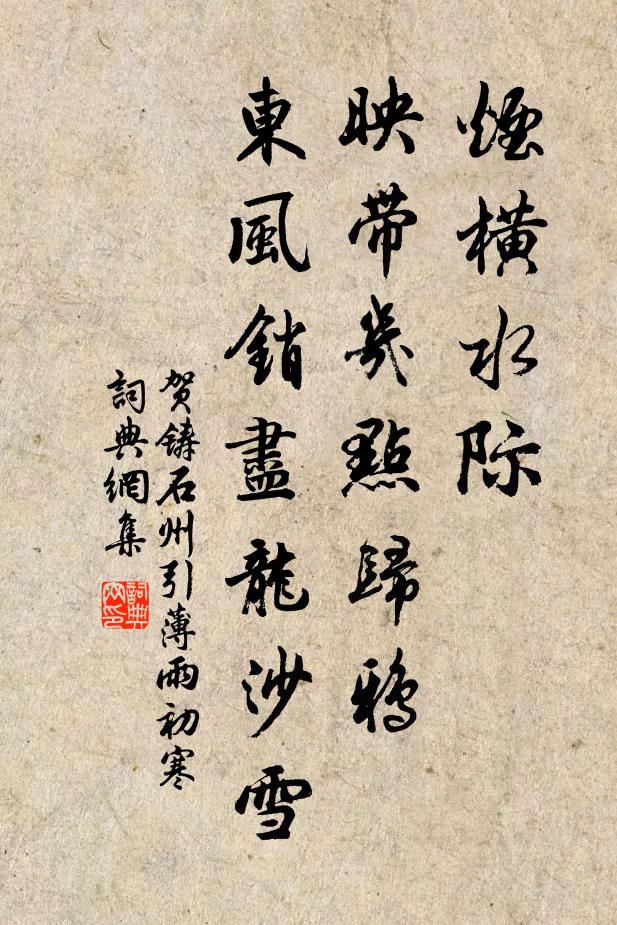 煙橫水际
映帶幾點歸鴉
東風銷盡龍沙雪
贺鑄石州引薄雨初寒
詞典網集
詞典
网印